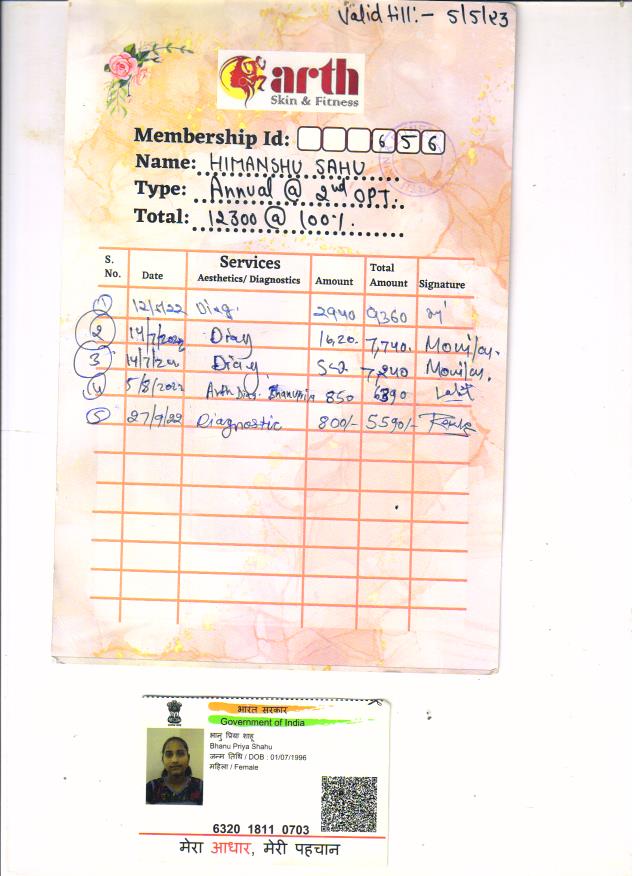 Valid till:- 5/5/23
arth
Skin & Fitness
Membership Id: 656
Name: HIMANSHU SAHU
Type: Annual @ 2nd OPT.
Total: 12300 @ 100%.
S. No. Date Services Aesthetics/ Diagnostics Amount Total Amount Signature
1 12/5/22 Diag. 2940 9360
2 14/7/2022 Diag 1620. 7,740.
3 14/7/20 Diag 7,240
4 5/8/2022 Arth Diag. Bhanupriya 850 6390
5 27/9/22 Diagnostic 800/- 5590/-
भारत सरकार
Government of India
भानु प्रिया शाहू
Bhanu Priya Shahu
जन्म तिथि / DOB : 01/07/1996
महिला / Female
6320 1811 0703
मेरा आधार, मेरी पहचान